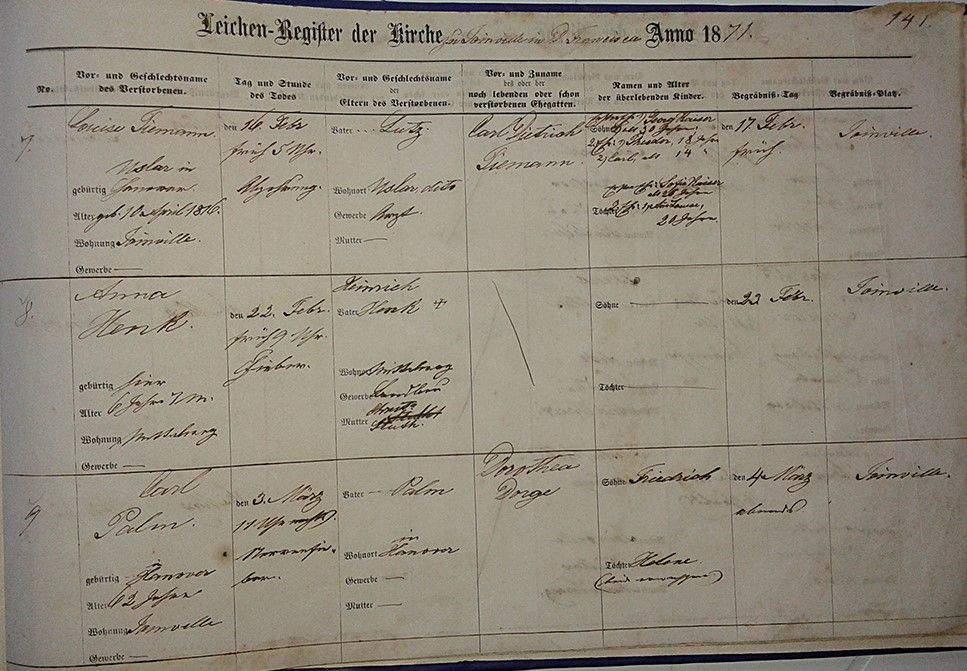 141.
Leichen-Register der Kirche zu Joinville in D. Francisca Anno 1871.
No.
Vor- und Geschlechtsname
des Verstorbenen.
Tag und Stunde
des Todes
Vor- und Geschlechtsname
der
Eltern des Verstorbenen.
Vor- und Zuname
des oder der
noch lebenden oder schon
verstorbenen Ehegatten.
Namen und Alter
der überlebenden Kinder.
Begräbniß-Tag
Begräbniß-Platz.
7
Louise Tiemann.
Uslar in
gebürtig Hanover.
Alter geb. 10 April 1816.
Wohnung Joinville.
Gewerbe —
den 16. Febr
früh 5 Uhr.
Abzehrung.
Vater Lutz.
Wohnort Uslar, dito
Gewerbe Arzt.
Mutter —
Carl Dietrich
Tiemann.
Georg Kaiser
Söhne alt 30 Jahre.
Theodor, 18 Jahr
2, Carl, alt 14 "
Sofie Kaiser
alt 28 Jahren
Töchter
20 Jahren.
den 17. Febr.
früh.
Joinville.
8.
Anna
Henk.
gebürtig hier
Alter 6 Jahre 7 M.
Wohnung
Gewerbe —
den 22. Febr.
früh 9 Uhr.
Fieber.
Heinrich
Vater Henk
Wohnort
Gewerbe
Mutter
Söhne —
Töchter —
den 23 Febr.
Joinville.
9
Carl
Palm.
gebürtig Hanover
Alter 62 Jahre
Wohnung Joinville
Gewerbe —
den 3. März
11 Uhr nachts.
Nervenfie-
ber.
Vater — Palm
in
Wohnort Hanover
Gewerbe —
Mutter —
Dorothea
Dorge
Söhne Friedrich
Töchter Helene
(beide erwachsen)
den 4 März
abends
Joinville.